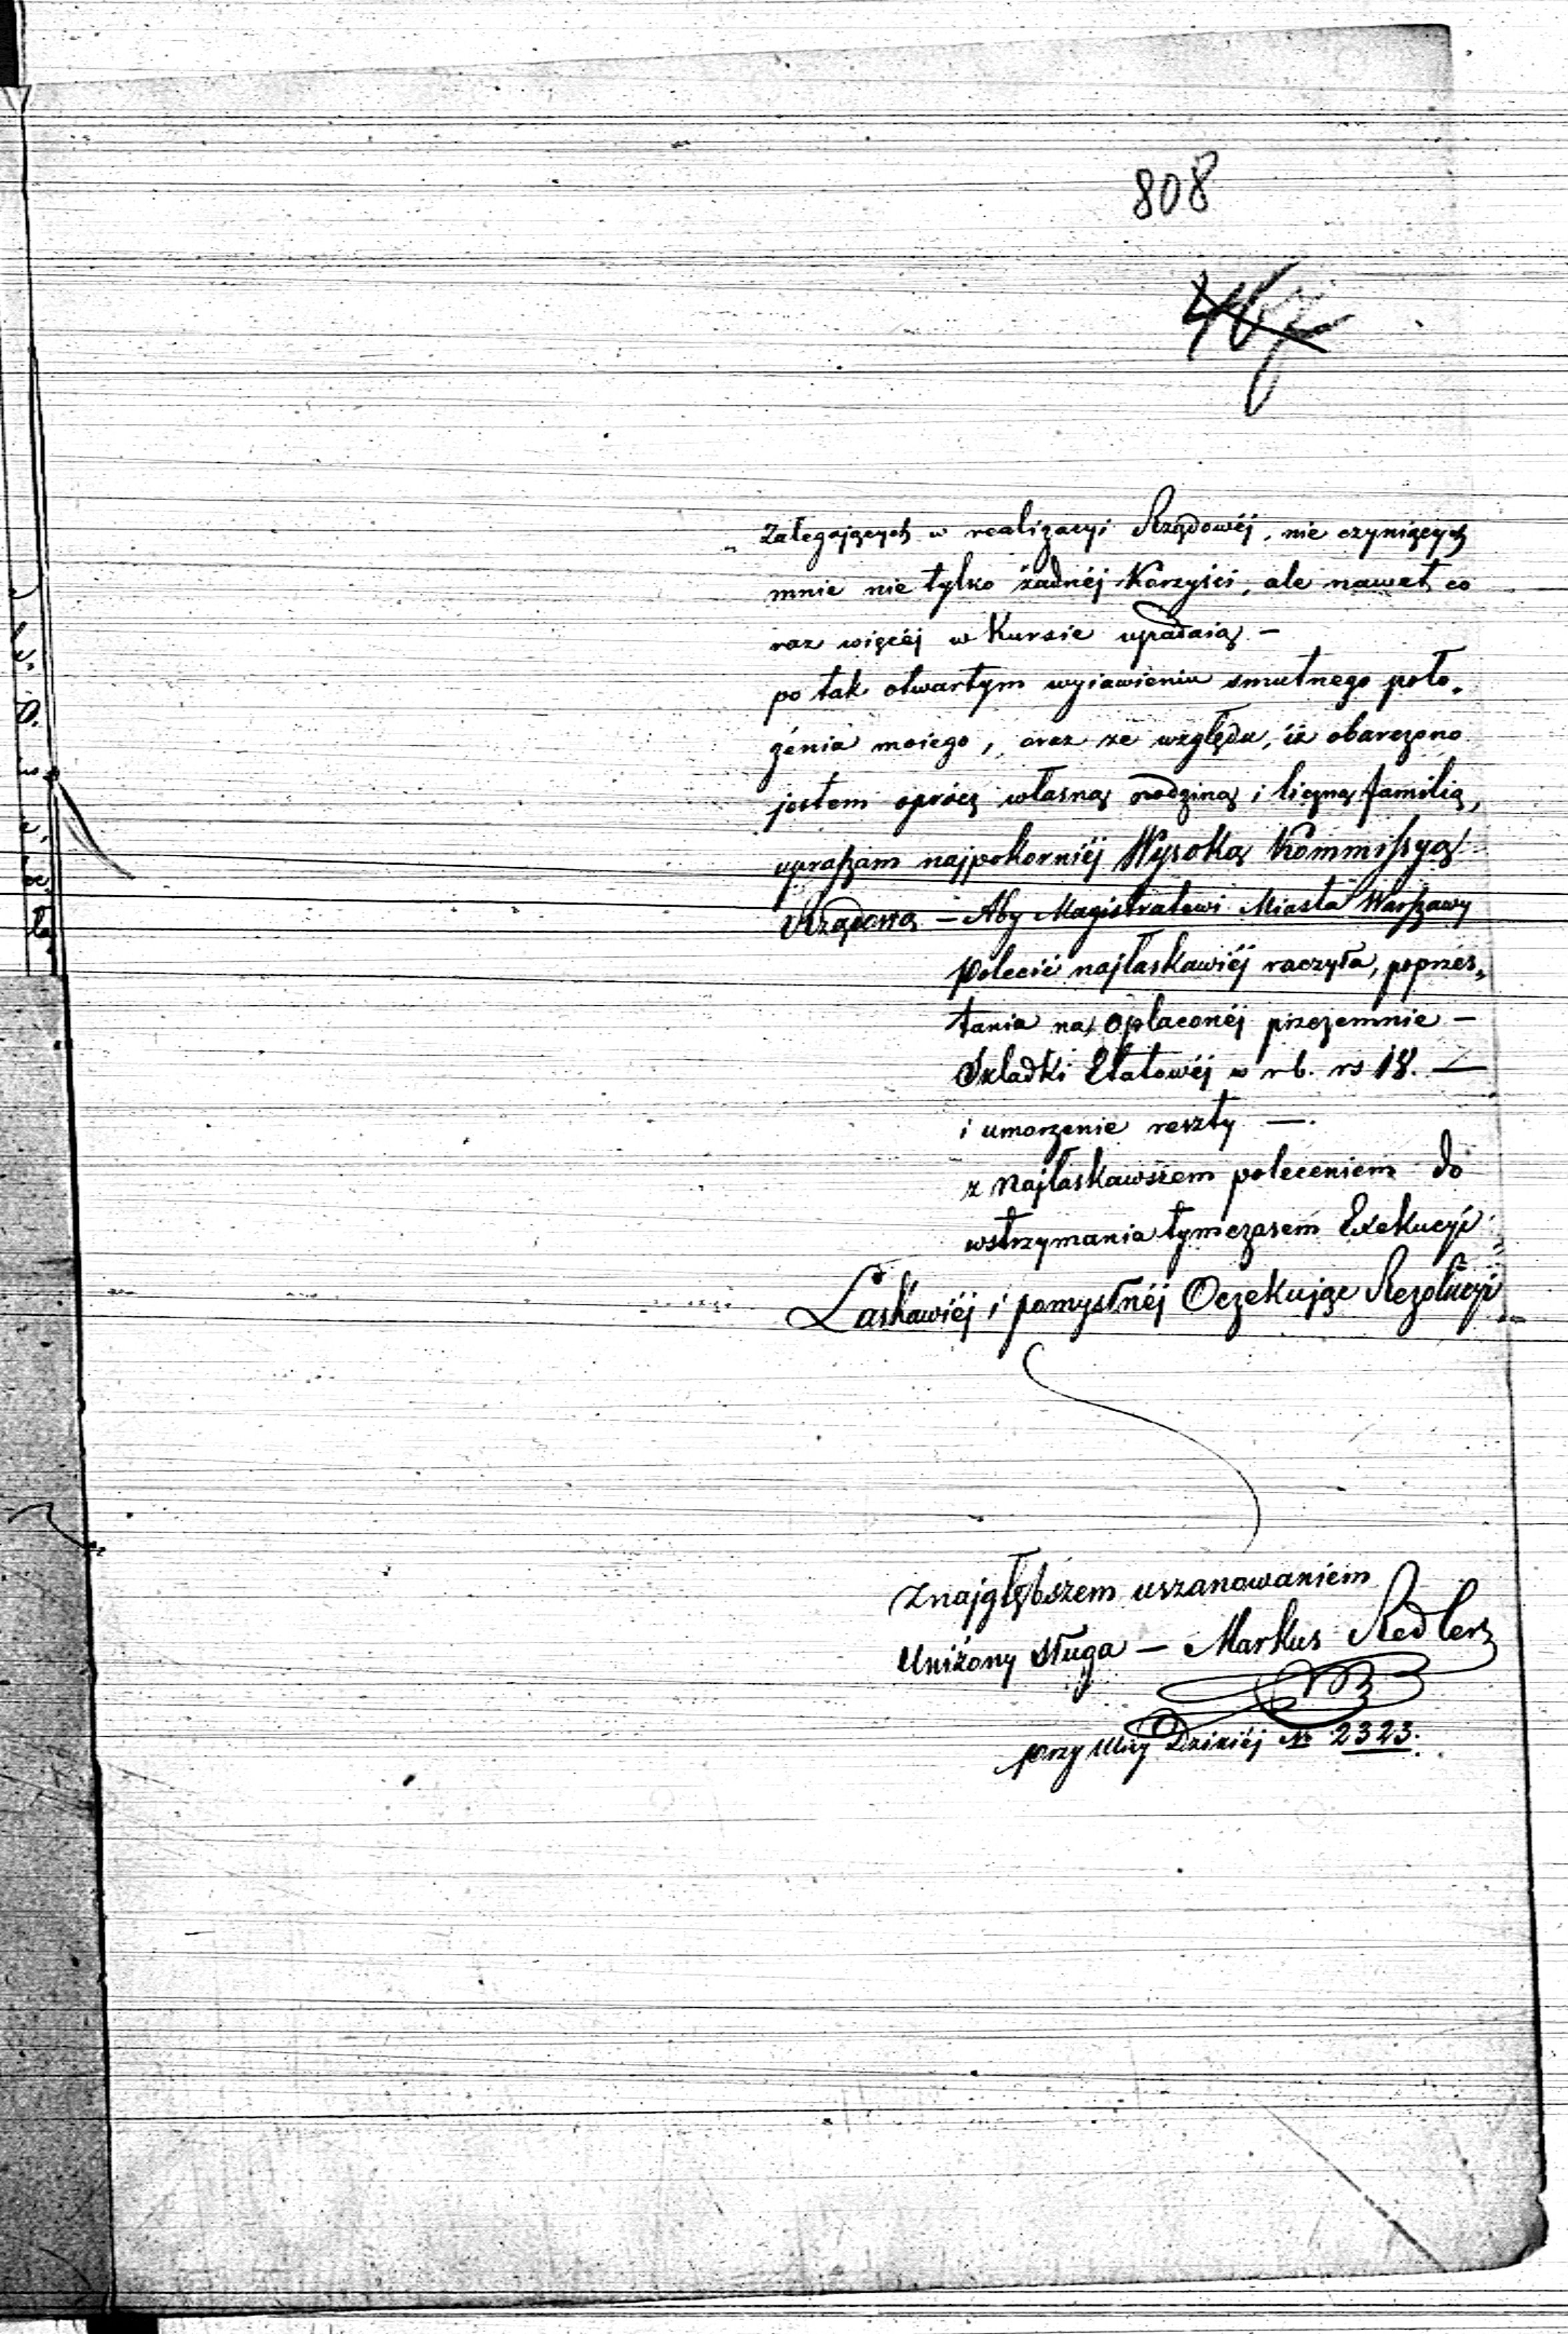 808
467
„Zalegających w realizacyi Rządowéj, nie czyniących
mnie nie tylko żadnéj Korzyści, ale nawet co
raz więcéj w Kursie upadaią —
po tak otwartym wyiawieniu smutnego poło„
żenia moiego, oraz ze względu, iż obarczono
jestem oprócz własną rodziną i liczną familią,
upraszam najpokorniéj Wysoką Kommissyą
Rządową — Aby Magistratowi Miasta Warszawy
Polecić najłaskawiéj raczyła, poprzes„
tania na opłaconéj przezemnie —
Składki Etatowéj w rb. rs 18. —
i umorzenie reszty —.
z Najłaskawszem poleceniem do
wstrzymania tymczasem Exekucyi
Łaskawiéj i pomyślnéj Oczekując Rezolucyi
Znajgłębszem uszanowaniem
Uniżony Sługa — Markus Redlers
przy Ulicy Dzikiéj № 2323.